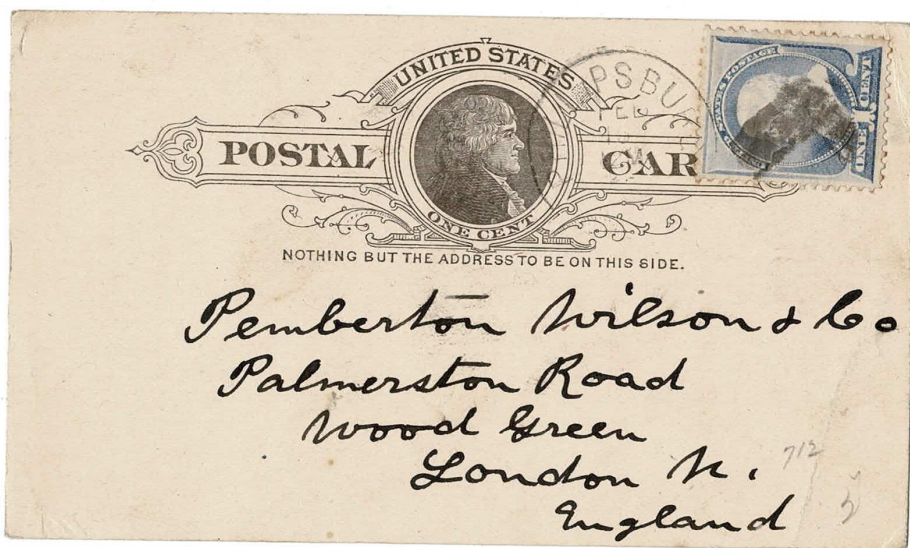 UNITED STATES
POSTAL CAR
ONE CENT
PSBU
FEB
UNITED STATES POSTAGE
ONE 1 CENT
NOTHING BUT THE ADDRESS TO BE ON THIS SIDE.
Pemberton Wilson & Co
Palmerston Road
Wood Green
London N.
England
712